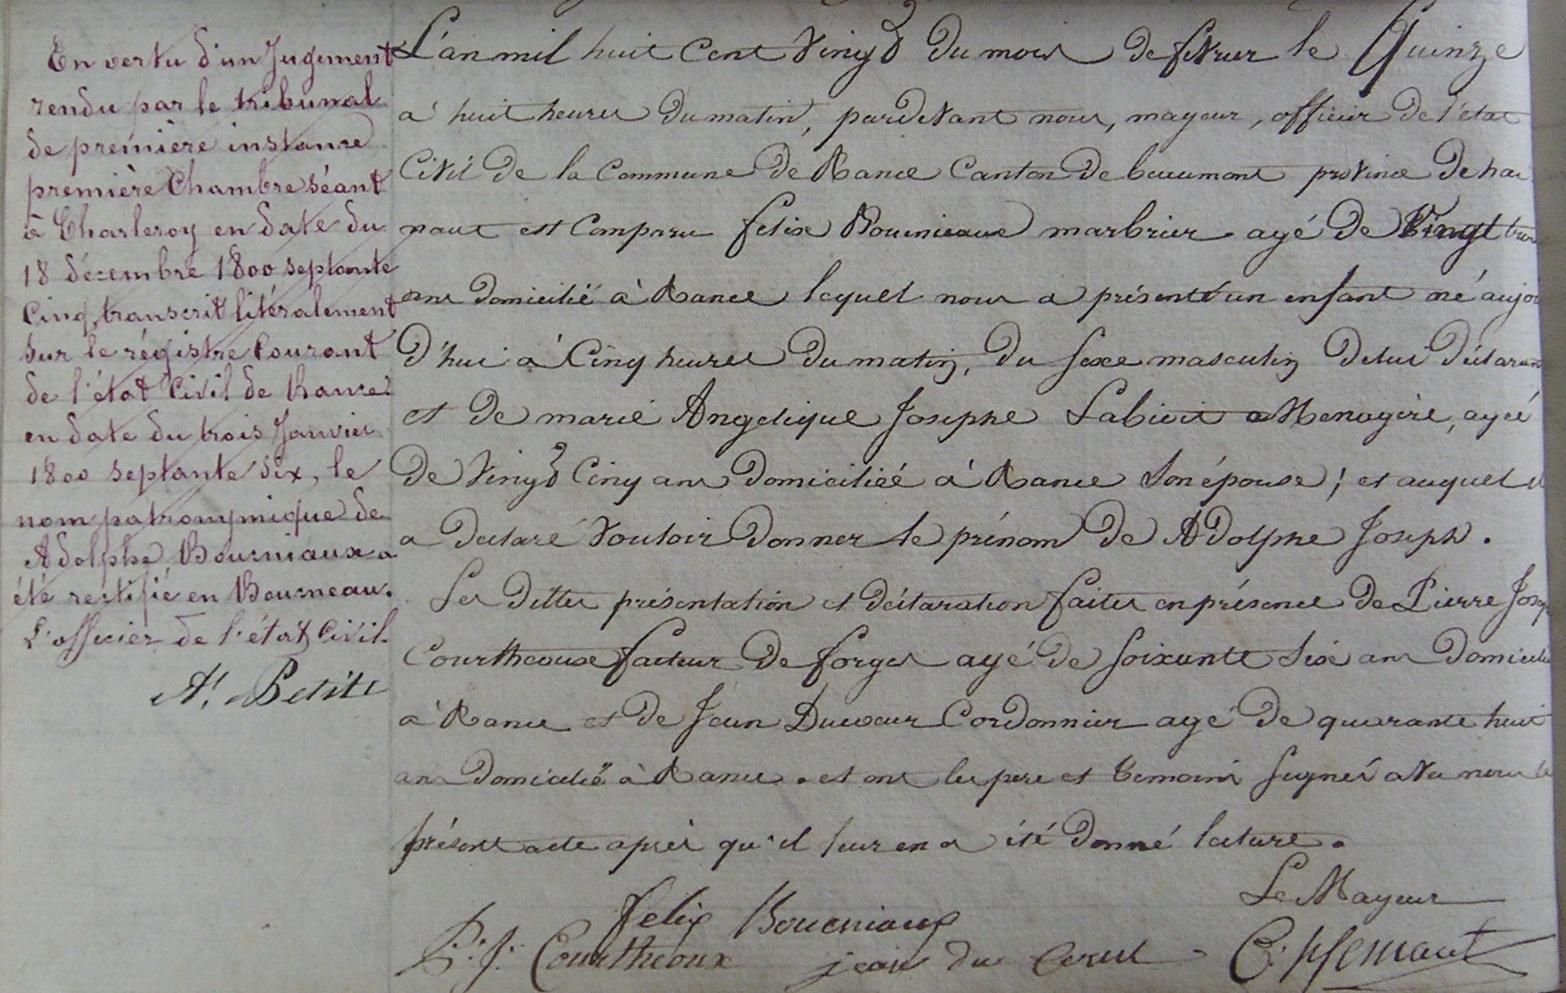 En vertu d'un Jugement
rendu par le tribunal
de première instance
première Chambre séant
à Charleroy en date du
18 décembre 1800 septante
Cinq, transcrit litéralement
sur le régistre Courant
de l'état Civil de Rance
en date du trois Janvier
1800 septante six, le
nom patronymique de
Adolphe Bourniaux a
été rectifié en Bourneau.
L'officier de l'état Civil
A. Petit
L'an mil huit Cent Vingt Du mois de fevrier le Quinze
à huit heures Du matin, pardevant nous, mayeur, officier De l'état
Civil De la Commune De Rance Canton De beaumont province De hai
naut est Comparu felix Bourniaux marbrier agé De Vingt trois
ans Domicilié à Rance lequel nous a présenté un enfant né aujour
D'hui à Cinq heures Du matin, Du sexe masculin De lui Déclarant
et De marie Angelique Josephe Labioit Menagère, agée
De Vingt Cinq ans Domiciliée à Rance Son épouse ; et auquel il
a Declaré Vouloir Donner le prénom De ADolphe Joseph.
Les Dittes présentation et Déclaration faites en présence De Pierre Joseph
Courtheoux facteur De forges agé De Soixante Six ans Domicilié
à Rance et De Jean Ducoeur CorDonnier agé De quarante huit
ans Domicilié à Rance. et ont les pere et temoins signés avec nous le
présent acte après qu'il leur en a été Donné lecture.
Le Mayeur
felix Bourniaux
P. J. Courtheoux jean du Coeur